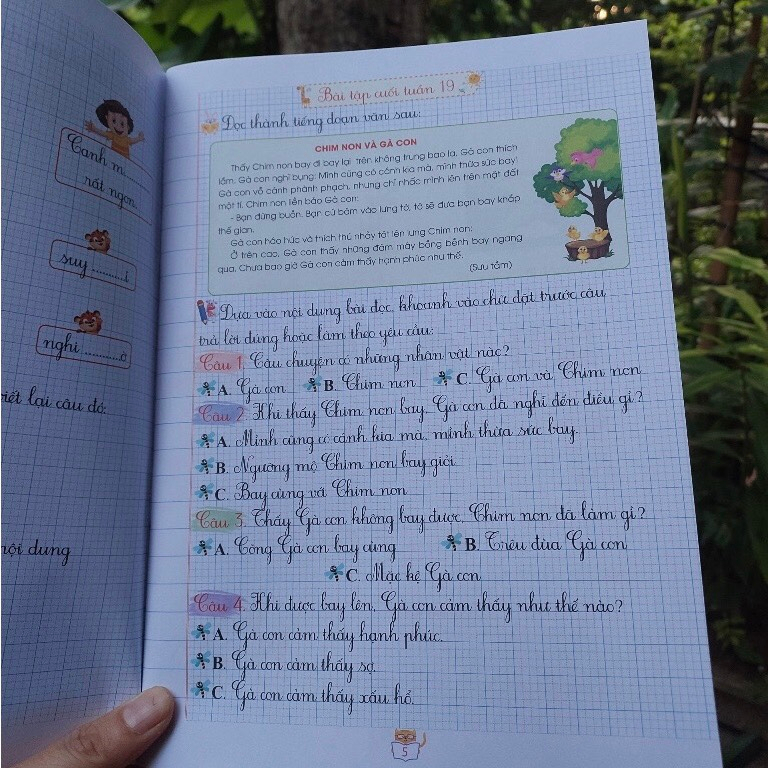 Canh m
rất ngon
suy ..........t
nghi ..........c
viết lại câu đó:
nội dung
Bài tập cuối tuần 19
Đọc thành tiếng đoạn văn sau:
CHIM NON VÀ GÀ CON
Thấy Chim non bay đi bay lại trên không trung bao la, Gà con thích
lắm. Gà con nghĩ bụng: Mình cũng có cánh kia mà, mình thừa sức bay!
Gà con vỗ cánh phành phạch, nhưng chỉ nhấc mình lên trên mặt đất
một tí. Chim non liền bảo Gà con:
- Bạn đừng buồn. Bạn cứ bám vào lưng tớ, tớ sẽ đưa bạn bay khắp
thế gian.
Gà con háo hức và thích thú nhảy tót lên lưng Chim non:
Ở trên cao, Gà con thấy những đám mây bồng bềnh bay ngang
qua. Chưa bao giờ Gà con cảm thấy hạnh phúc như thế.
(Sưu tầm)
Dựa vào nội dung bài đọc, khoanh vào chữ đặt trước câu
trả lời đúng hoặc làm theo yêu cầu:
Câu 1. Câu chuyện có những nhân vật nào?
A. Gà con B. Chim non C. Gà con và Chim non
Câu 2. Khi thấy Chim non bay, Gà con đã nghĩ đến điều gì?
A. Mình cũng có cánh kia mà, mình thừa sức bay.
B. Ngưỡng mộ Chim non bay giỏi
C. Bay cùng với Chim non
Câu 3. Thấy Gà con không bay được, Chim non đã làm gì?
A. Cõng Gà con bay cùng B. Trêu đùa Gà con
C. Mặc kệ Gà con
Câu 4. Khi được bay lên, Gà con cảm thấy như thế nào?
A. Gà con cảm thấy hạnh phúc.
B. Gà con cảm thấy sợ.
C. Gà con cảm thấy xấu hổ.
5